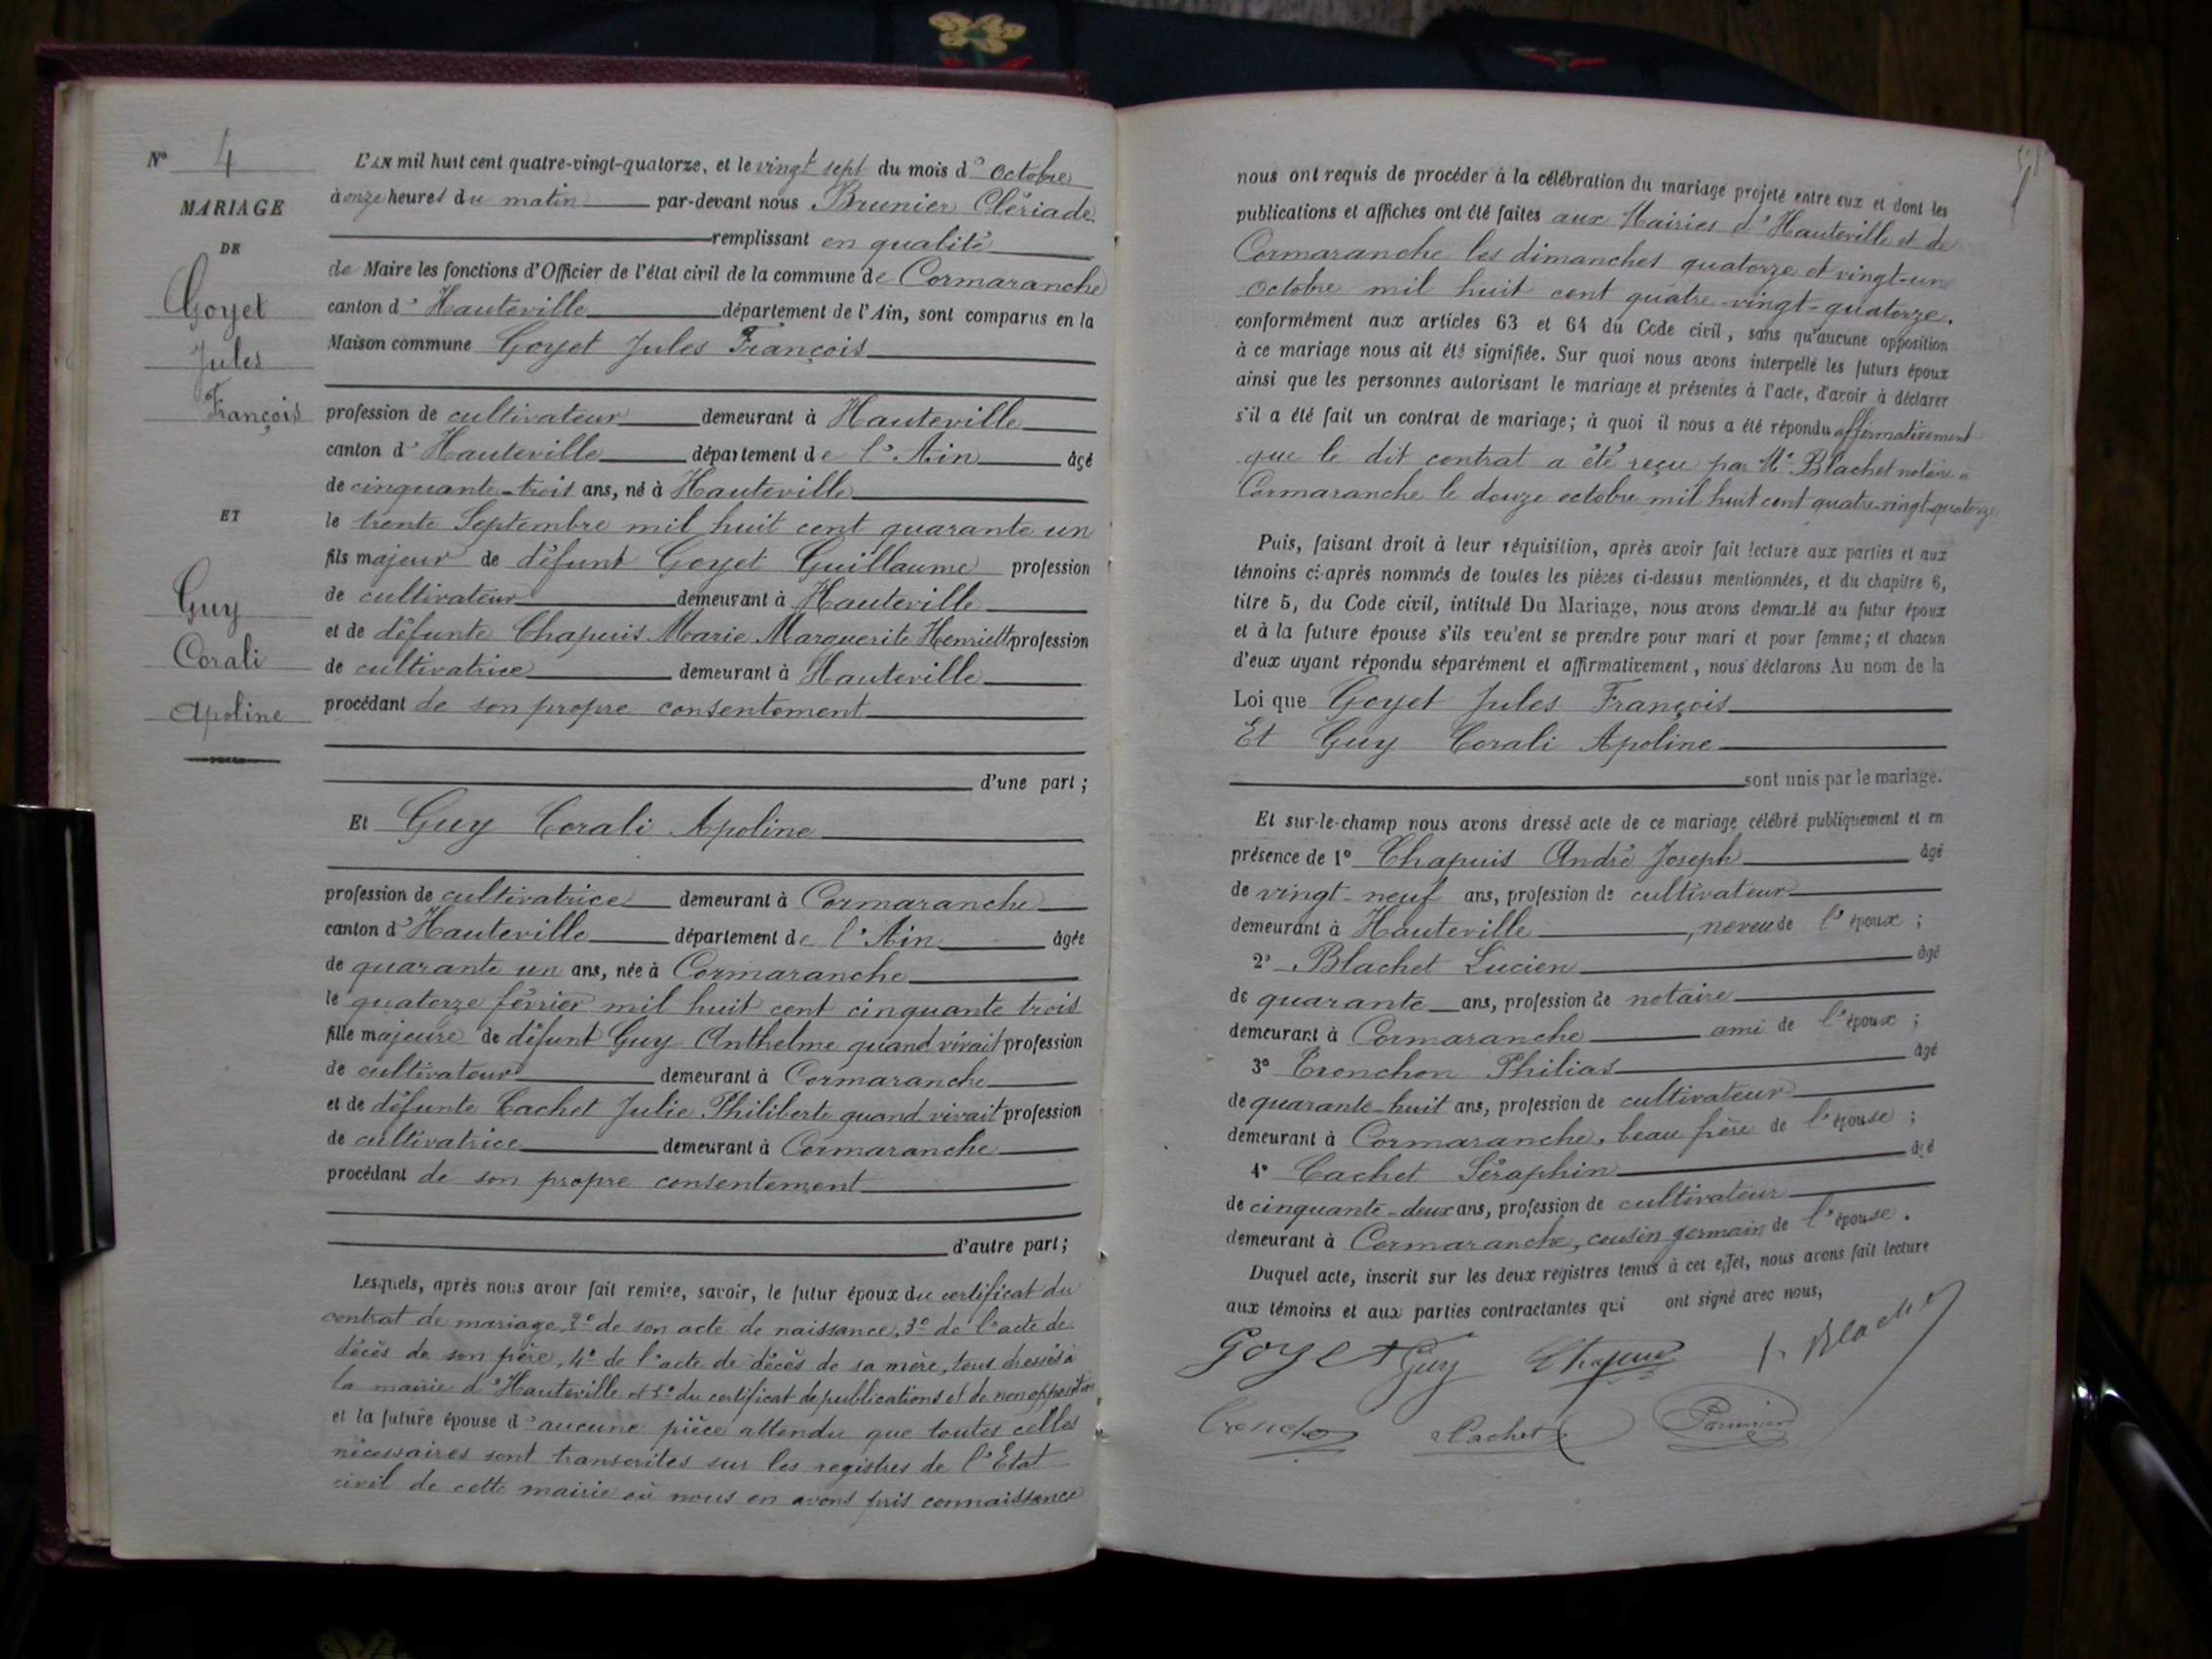 N° 4
MARIAGE
DE
Goyet
Jules
François
ET
Guy
Corali
Apoline
L'AN mil huit cent quatre-vingt-quatorze, et le vingt sept du mois d'octobre
à onze heures du matin par-devant nous Brunier Clériade
remplissant en qualité
de Maire les fonctions d'Officier de l'état civil de la commune de Cormaranche
canton d'Hauteville département de l'Ain, sont comparus en la
Maison commune Goyet Jules François
profession de cultivateur demeurant à Hauteville
canton d'Hauteville département de l'Ain âgé
de cinquante-trois ans, né à Hauteville
le trente Septembre mil huit cent quarante un
fils majeur de défunt Goyet Guillaume profession
de cultivateur demeurant à Hauteville
et de défunte Chapuis Marie Marguerite Henriette profession
de cultivatrice demeurant à Hauteville
procédant de son propre consentement
d'une part ;
Et Guy Corali Apoline
profession de cultivatrice demeurant à Cormaranche
canton d'Hauteville département de l'Ain âgée
de quarante un ans, née à Cormaranche
le quatorze février mil huit cent cinquante trois
fille majeure de défunt Guy Anthelme quand vivait profession
de cultivateur demeurant à Cormaranche
et de défunte Cachet Julie Philiberte quand vivait profession
de cultivatrice demeurant à Cormaranche
procédant de son propre consentement
d'autre part ;
Lesquels, après nous avoir fait remise, savoir, le futur époux du certificat du
contrat de mariage, 2° de son acte de naissance, 3° de l'acte de
décès de son père, 4° de l'acte de décès de sa mère, tous dressés à
la mairie d'Hauteville et 5° du certificat de publications et de non opposition
et la future épouse d'aucune pièce attendu que toutes celles
nécessaires sont transcrites sur les registres de l'Etat
civil de cette mairie où nous en avons pris connaissance
nous ont requis de procéder à la célébration du mariage projeté entre eux et dont les
publications et affiches ont été faites aux Mairies d'Hauteville et de
Cormaranche les dimanches quatorze et vingt-un
octobre mil huit cent quatre-vingt-quatorze.
conformément aux articles 63 et 64 du Code civil, sans qu'aucune opposition
à ce mariage nous ait été signifiée. Sur quoi nous avons interpellé les futurs époux
ainsi que les personnes autorisant le mariage et présentes à l'acte, d'avoir à déclarer
s'il a été fait un contrat de mariage; à quoi il nous a été répondu affirmativement
que le dit contrat a été reçu par Me Blachet notaire à
Cormaranche le douze octobre mil huit cent quatre-vingt-quatorze
Puis, faisant droit à leur réquisition, après avoir fait lecture aux parties et aux
témoins ci-après nommés de toutes les pièces ci-dessus mentionnées, et du chapitre 6,
titre 5, du Code civil, intitulé Du Mariage, nous avons demandé au futur époux
et à la future épouse s'ils veulent se prendre pour mari et pour femme; et chacun
d'eux ayant répondu séparément et affirmativement, nous déclarons Au nom de la
Loi que Goyet Jules François
Et Guy Corali Apoline
sont unis par le mariage.
Et sur-le-champ nous avons dressé acte de ce mariage célébré publiquement et en
présence de 1° Chapuis André Joseph âgé
de vingt-neuf ans, profession de cultivateur
demeurant à Hauteville, neveu de l'époux ;
2° Blachet Lucien âgé
de quarante ans, profession de notaire
demeurant à Cormaranche ami de l'époux ;
3° Tronchon Philias âgé
de quarante-huit ans, profession de cultivateur
demeurant à Cormaranche, beau frère de l'épouse ;
4° Cachet Séraphin âgé
de cinquante-deux ans, profession de cultivateur
demeurant à Cormaranche, cousin germain de l'épouse.
Duquel acte, inscrit sur les deux registres tenus à cet effet, nous avons fait lecture
aux témoins et aux parties contractantes qui ont signé avec nous,
Goyet Guy Chapuis L. Blachet
Cachet